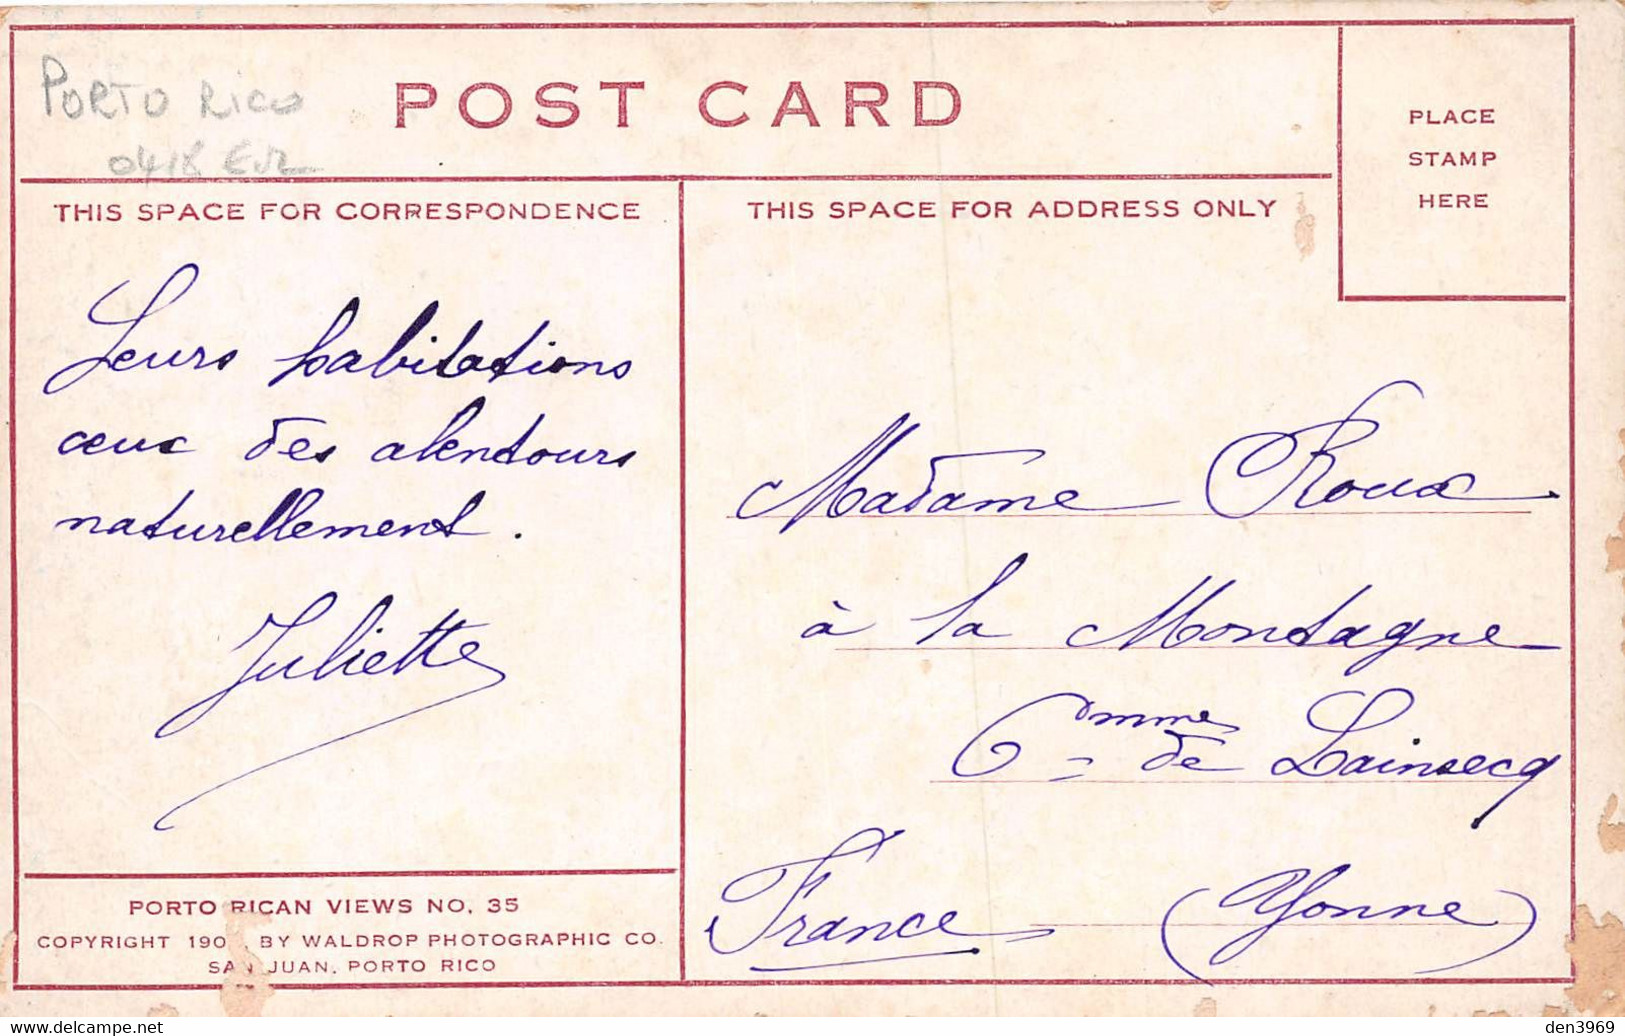 PORTO RICO
POST CARD
PLACE
STAMP
HERE
THIS SPACE FOR CORRESPONDENCE
Leurs habitations
ceux des alentours
naturellement.
Juliette
PORTO RICAN VIEWS NO. 35
COPYRIGHT 190 , BY WALDROP PHOTOGRAPHIC CO.
SAN JUAN. PORTO RICO
THIS SPACE FOR ADDRESS ONLY
Madame Roux
à la Montagne
Cmme de Lainsecq
France (Yonne)
www.delcampe.net
den3969